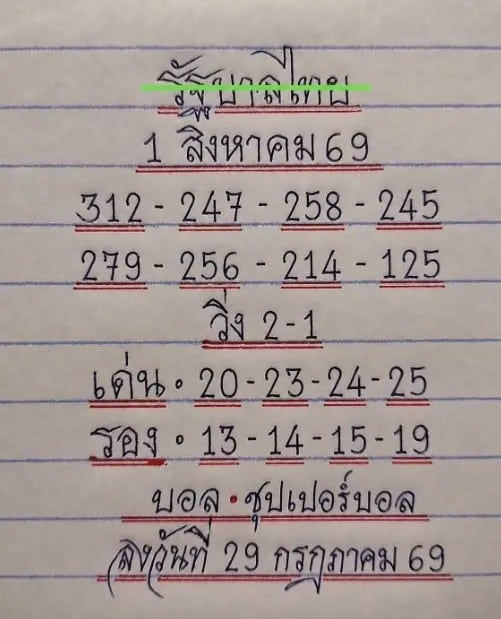 รัฐบาลไทย
1 สิงหาคม 69
312 - 247 - 258 - 245
279 - 256 - 214 - 125
วิ่ง 2-1
เด่น • 20 - 23 - 24 - 25
รอง • 13 - 14 - 15 - 19
บอล • ซุปเปอร์บอล
ลงวันที่ 29 กรกฎาคม 69